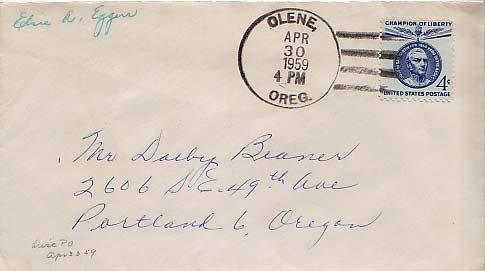 OLENE,
APR
30
1959
4 PM
OREG.
CHAMPION OF LIBERTY
4¢
UNITED STATES POSTAGE
Mr Darby Beaner
2606 S.E. 49th Ave
Portland 6, Oregon
Disc PO